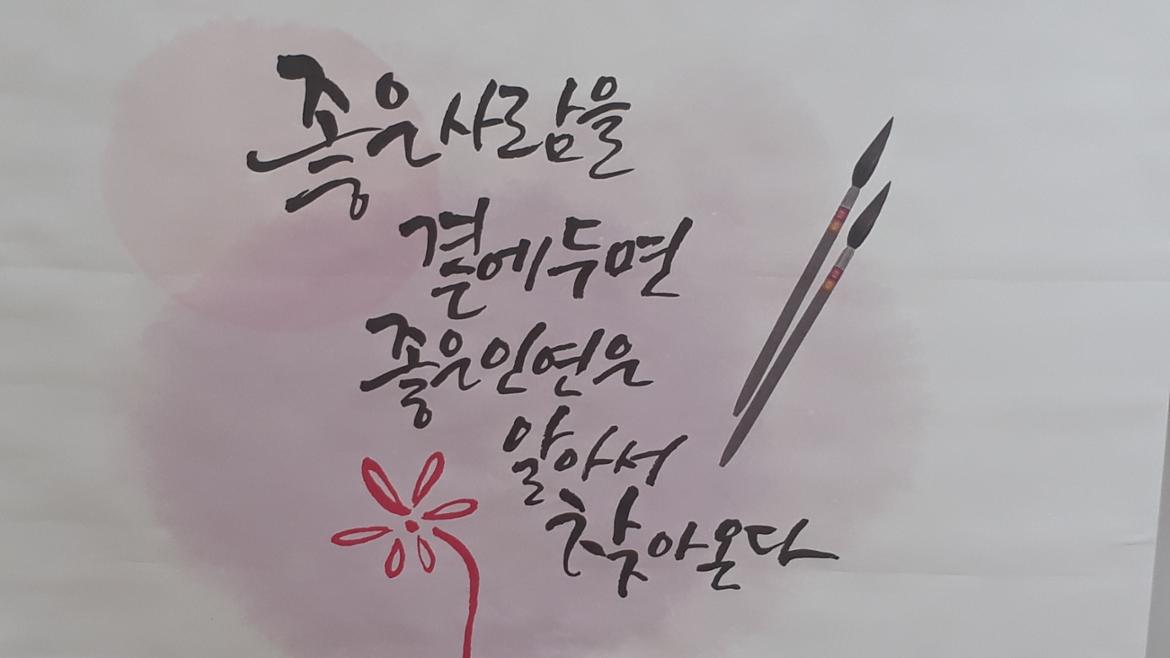 좋은 사람을
곁에 두면
좋은 인연은
알아서
찾아온다